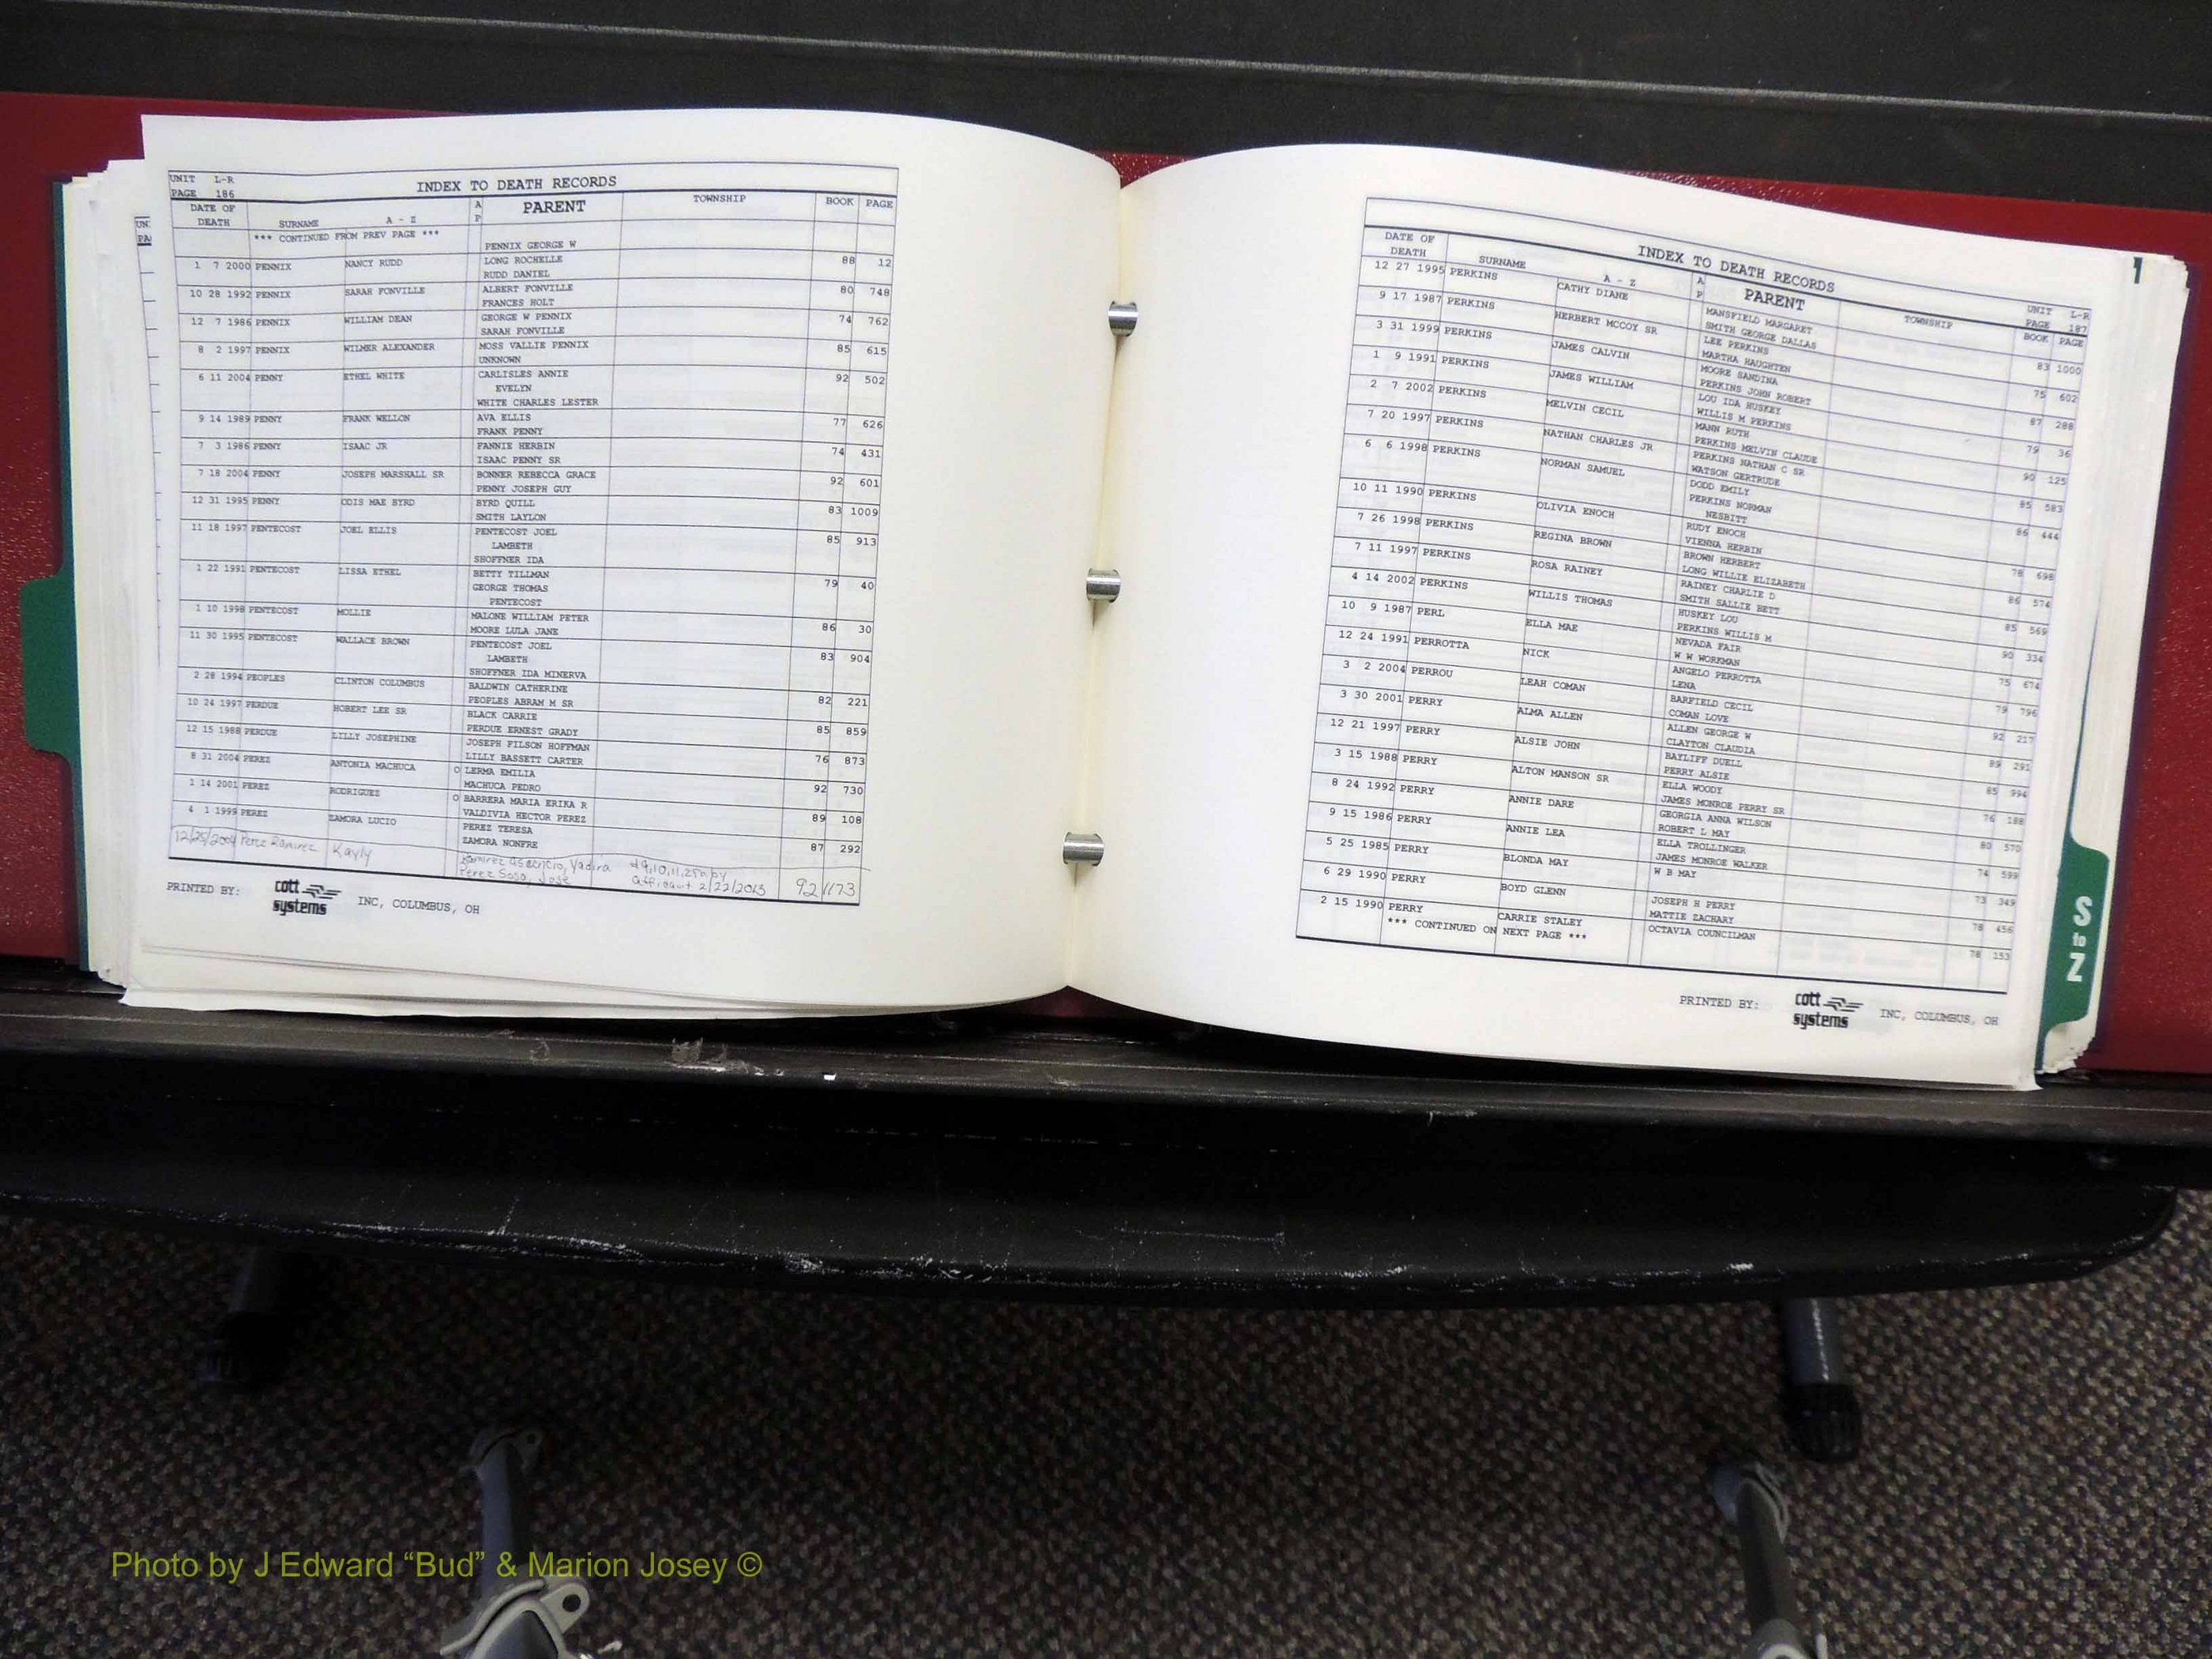 UNIT L-R
PAGE 186
INDEX TO DEATH RECORDS
DATE OF DEATH SURNAME A - Z A P PARENT TOWNSHIP BOOK PAGE
*** CONTINUED FROM PREV PAGE ***
PENNIX GEORGE W
1 7 2000 PENNIX NANCY RUDD LONG ROCHELLE 88 12
RUDD DANIEL
10 28 1992 PENNIX SARAH FONVILLE ALBERT FONVILLE 80 748
FRANCES HOLT
12 7 1986 PENNIX WILLIAM DEAN GEORGE W PENNIX 74 762
SARAH FONVILLE
8 2 1997 PENNIX WILMER ALEXANDER MOSS VALLIE PENNIX 85 615
UNKNOWN
6 11 2004 PENNY ETHEL WHITE CARLISLES ANNIE 92 502
EVELYN
WHITE CHARLES LESTER
9 14 1989 PENNY FRANK WELLON AVA ELLIS 77 626
FRANK PENNY
7 3 1986 PENNY ISAAC JR FANNIE HERBIN 74 431
ISAAC PENNY SR
7 18 2004 PENNY JOSEPH MARSHALL SR BONNER REBECCA GRACE 92 601
PENNY JOSEPH GUY
12 31 1995 PENNY ODIS MAE BYRD BYRD QUILL 83 1009
SMITH LAYLON
11 18 1997 PENTECOST JOEL ELLIS PENTECOST JOEL 85 913
LAMBETH
SHOFFNER IDA
1 22 1991 PENTECOST LISSA ETHEL BETTY TILLMAN 79 40
GEORGE THOMAS
PENTECOST
1 10 1998 PENTECOST MOLLIE MALONE WILLIAM PETER 86 30
MOORE LULA JANE
11 30 1995 PENTECOST WALLACE BROWN PENTECOST JOEL 83 904
LAMBETH
SHOFFNER IDA MINERVA
2 28 1994 PEOPLES CLINTON COLUMBUS BALDWIN CATHERINE 82 221
PEOPLES ABRAM M SR
10 24 1997 PERDUE HOBERT LEE SR BLACK CARRIE 85 859
PERDUE ERNEST GRADY
12 15 1988 PERDUE LILLY JOSEPHINE JOSEPH FILSON HOFFMAN 76 873
LILLY BASSETT CARTER
8 31 2004 PEREZ ANTONIA MACHUCA O LERMA EMILIA 92 730
MACHUCA PEDRO
1 14 2001 PEREZ RODRIGUEZ O BARRERA MARIA ERIKA R 89 108
VALDIVIA HECTOR PEREZ
4 1 1999 PEREZ ZAMORA LUCIO PEREZ TERESA 87 292
ZAMORA NONFRE
12/25/2004 Perez Ramirez Kayly Ramirez Ascencio, Yadira 92 1173
Perez Sosa, Jose 2/22/2013
PRINTED BY: cott systems INC, COLUMBUS, OH
INDEX TO DEATH RECORDS
UNIT L-R
PAGE 187
DATE OF DEATH SURNAME A - Z A P PARENT TOWNSHIP BOOK PAGE
12 27 1995 PERKINS CATHY DIANE MANSFIELD MARGARET 83 1000
SMITH GEORGE DALLAS
9 17 1987 PERKINS HERBERT MCCOY SR LEE PERKINS 75 602
MARTHA HAUGHTEN
3 31 1999 PERKINS JAMES CALVIN MOORE SANDINA 87 288
PERKINS JOHN ROBERT
1 9 1991 PERKINS JAMES WILLIAM LOU IDA HUSKEY 79 36
WILLIS M PERKINS
2 7 2002 PERKINS MELVIN CECIL MANN RUTH 90 125
PERKINS MELVIN CLAUDE
7 20 1997 PERKINS NATHAN CHARLES JR PERKINS NATHAN C SR 85 583
WATSON GERTRUDE
6 6 1998 PERKINS NORMAN SAMUEL DODD EMILY 86 444
PERKINS NORMAN
NESBITT
10 11 1990 PERKINS OLIVIA ENOCH RUDY ENOCH 78 698
VIENNA HERBIN
7 26 1998 PERKINS REGINA BROWN BROWN HERBERT 86 574
LONG WILLIE ELIZABETH
7 11 1997 PERKINS ROSA RAINEY RAINEY CHARLIE D 85 569
SMITH SALLIE BETT
4 14 2002 PERKINS WILLIS THOMAS HUSKEY LOU 90 334
PERKINS WILLIS M
10 9 1987 PERL ELLA MAE NEVADA FAIR 75 674
W W WORKMAN
12 24 1991 PERROTTA NICK ANGELO PERROTTA 79 796
LENA
3 2 2004 PERROU LEAH COMAN BARFIELD CECIL 92 217
COMAN LOVE
3 30 2001 PERRY ALMA ALLEN ALLEN GEORGE W 89 291
CLAYTON CLAUDIA
12 21 1997 PERRY ALSIE JOHN BAYLIFF DUELL 85 994
PERRY ALSIE
3 15 1988 PERRY ALTON MANSON SR ELLA WOODY 76 188
JAMES MONROE PERRY SR
8 24 1992 PERRY ANNIE DARE GEORGIA ANNA WILSON 80 570
ROBERT L MAY
9 15 1986 PERRY ANNIE LEA ELLA TROLLINGER 74 599
JAMES MONROE WALKER
5 25 1985 PERRY BLONDA MAY W B MAY 73 349
6 29 1990 PERRY BOYD GLENN JOSEPH H PERRY 78 456
MATTIE ZACHARY
2 15 1990 PERRY CARRIE STALEY OCTAVIA COUNCILMAN 78 153
*** CONTINUED ON NEXT PAGE ***
PRINTED BY: cott systems INC, COLUMBUS, OH
S to Z
Photo by J Edward “Bud” & Marion Josey ©